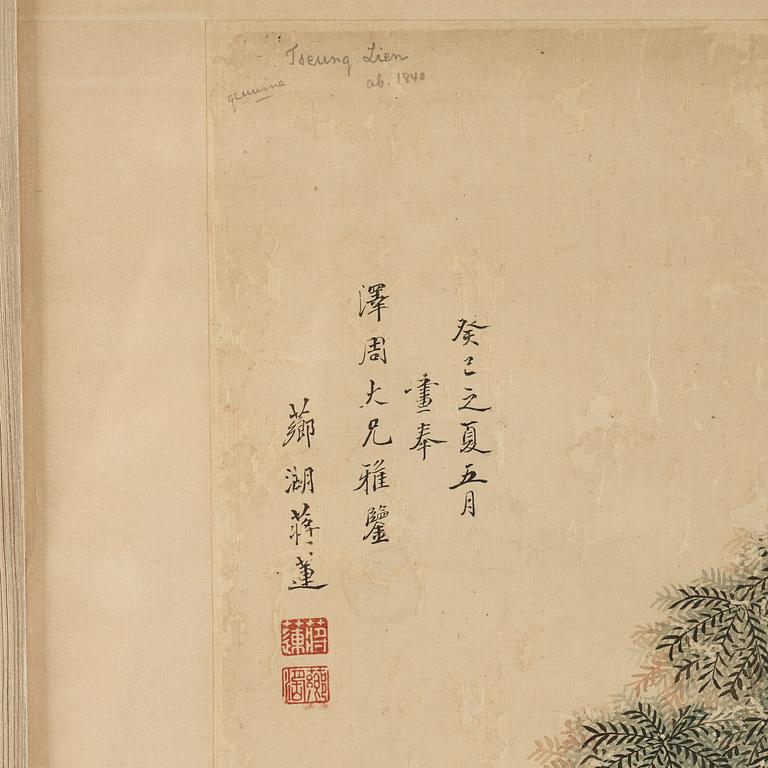 Tseung Lien
genuine ab. 1840
癸巳之夏五月
畫奉
澤周大兄雅鑒
薌湖蔣蓮
蔣蓮